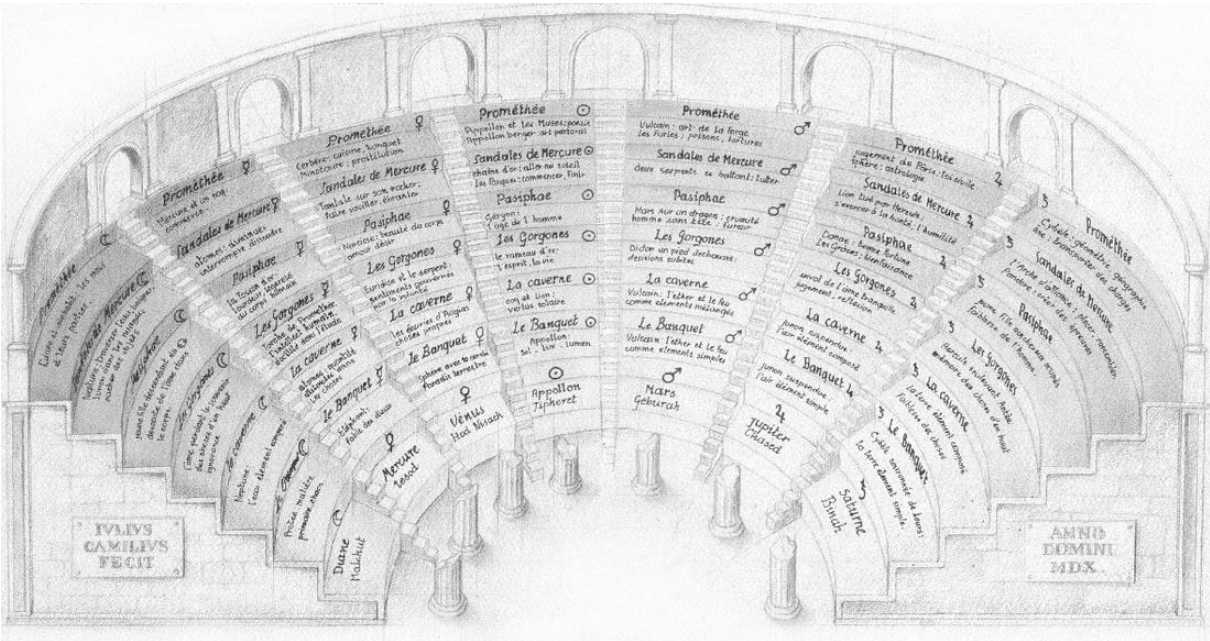 Prométhée ☾
Diane et
Sandales de Mercure ☾
Neptune:
Pasiphae ☾
jeune fille descendant du
descente de l'âme dans
le corps.
Les Gorgones ☾
ignorance
la caverne ☾
Neptune:
l'eau élément composé
Le Banquet ☾
Protée: matière
première, chaos
☾
Diane
Malchut
Prométhée ☿
Mercure et un coq:
commerce.
Sandales de Mercure ☿
atomes: diminuer,
interrompre dissoudre
Pasiphae ☿
la Toison d'or:
lourdeur, légèreté
du corps humain
Les Gorgones ☿
La caverne ☿
Le Banquet ☿
Eléphant:
fable des dieux
☿
Mercure
Iesod
Prométhée ♀
Cerbère: cuisine, banquet
Minotaure: prostitution
Sandales de Mercure ♀
Tantale sur son rocher:
faire vaciller, ébranler
Pasiphae ♀
Narcisse: beauté du corps
amour désir
Les Gorgones ♀
Euridice et le serpent:
sentiments gouvernés
par la volonté
La caverne ♀
les écuries d'Augias
choses propres
le Banquet ♀
Paradis terrestre
♀
Vénus
Hod Nisach
Prométhée ☉
Appollon et les Muses: poésie
Appollon berger: art pastoral
Sandales de Mercure ☉
chaîne d'or: aller au soleil
les Parques: commencer, finir
Pasiphae ☉
Géryon:
l'âge de l'homme
les Gorgones ☉
le rameau d'or:
l'esprit, la vie
La caverne ☉
coq et lion:
vertus solaire
Le Banquet ☉
Appollon:
sol, lux, lumen
☉
Appollon
Tipheret
Prométhée ♂
Vulcain: art de la forge
les Furies: prisons, tortures
Sandales de Mercure ♂
deux serpents se battant: lutter
Pasiphae ♂
Mars sur un dragon: cruauté
homme sans tête: fureur
les Gorgones ♂
Didon un pied déchaussé:
décisions subites
La caverne ♂
Vulcain: l'éther et le feu
comme éléments mélangés
Le Banquet ♂
Vulcain: l'éther et le feu
comme éléments simples
♂
Mars
Geburah
Prométhée ♃
Jugement de Pâris: loi civile
sphère: astrologie
Sandales de Mercure ♃
Lion tué par Hercule:
s'exercer à la bonté, l'humilité
Pasiphae ♃
Danae: bonne fortune
Les Grâces: bienfaisance
Les Gorgones ♃
envol de l'âme tranquille
jugement, réflexion
La caverne ♃
Junon suspendue
l'air élément composé
Le Banquet ♃
Junon suspendue
l'air élément simple
♃
Jupiter
Chased
Prométhée
Cybèle: géométrie, géographie
âne: transporter des charges
Sandales de Mercure
l'Arche d'alliance: placer, rassembler
Pandore: créer des épreuves
Pasiphae
faiblesse de l'homme
Les Gorgones
Hercule soulevant Antée:
mémoire des choses d'en haut
La caverne
la terre élément composé
faiblesse des choses
Le Banquet
Cybèle couronnée de tours:
la terre élément simple.
Saturne
Binah
IVLIVS
CAMILIVS
FECIT
ANNO
DOMINI
MDX